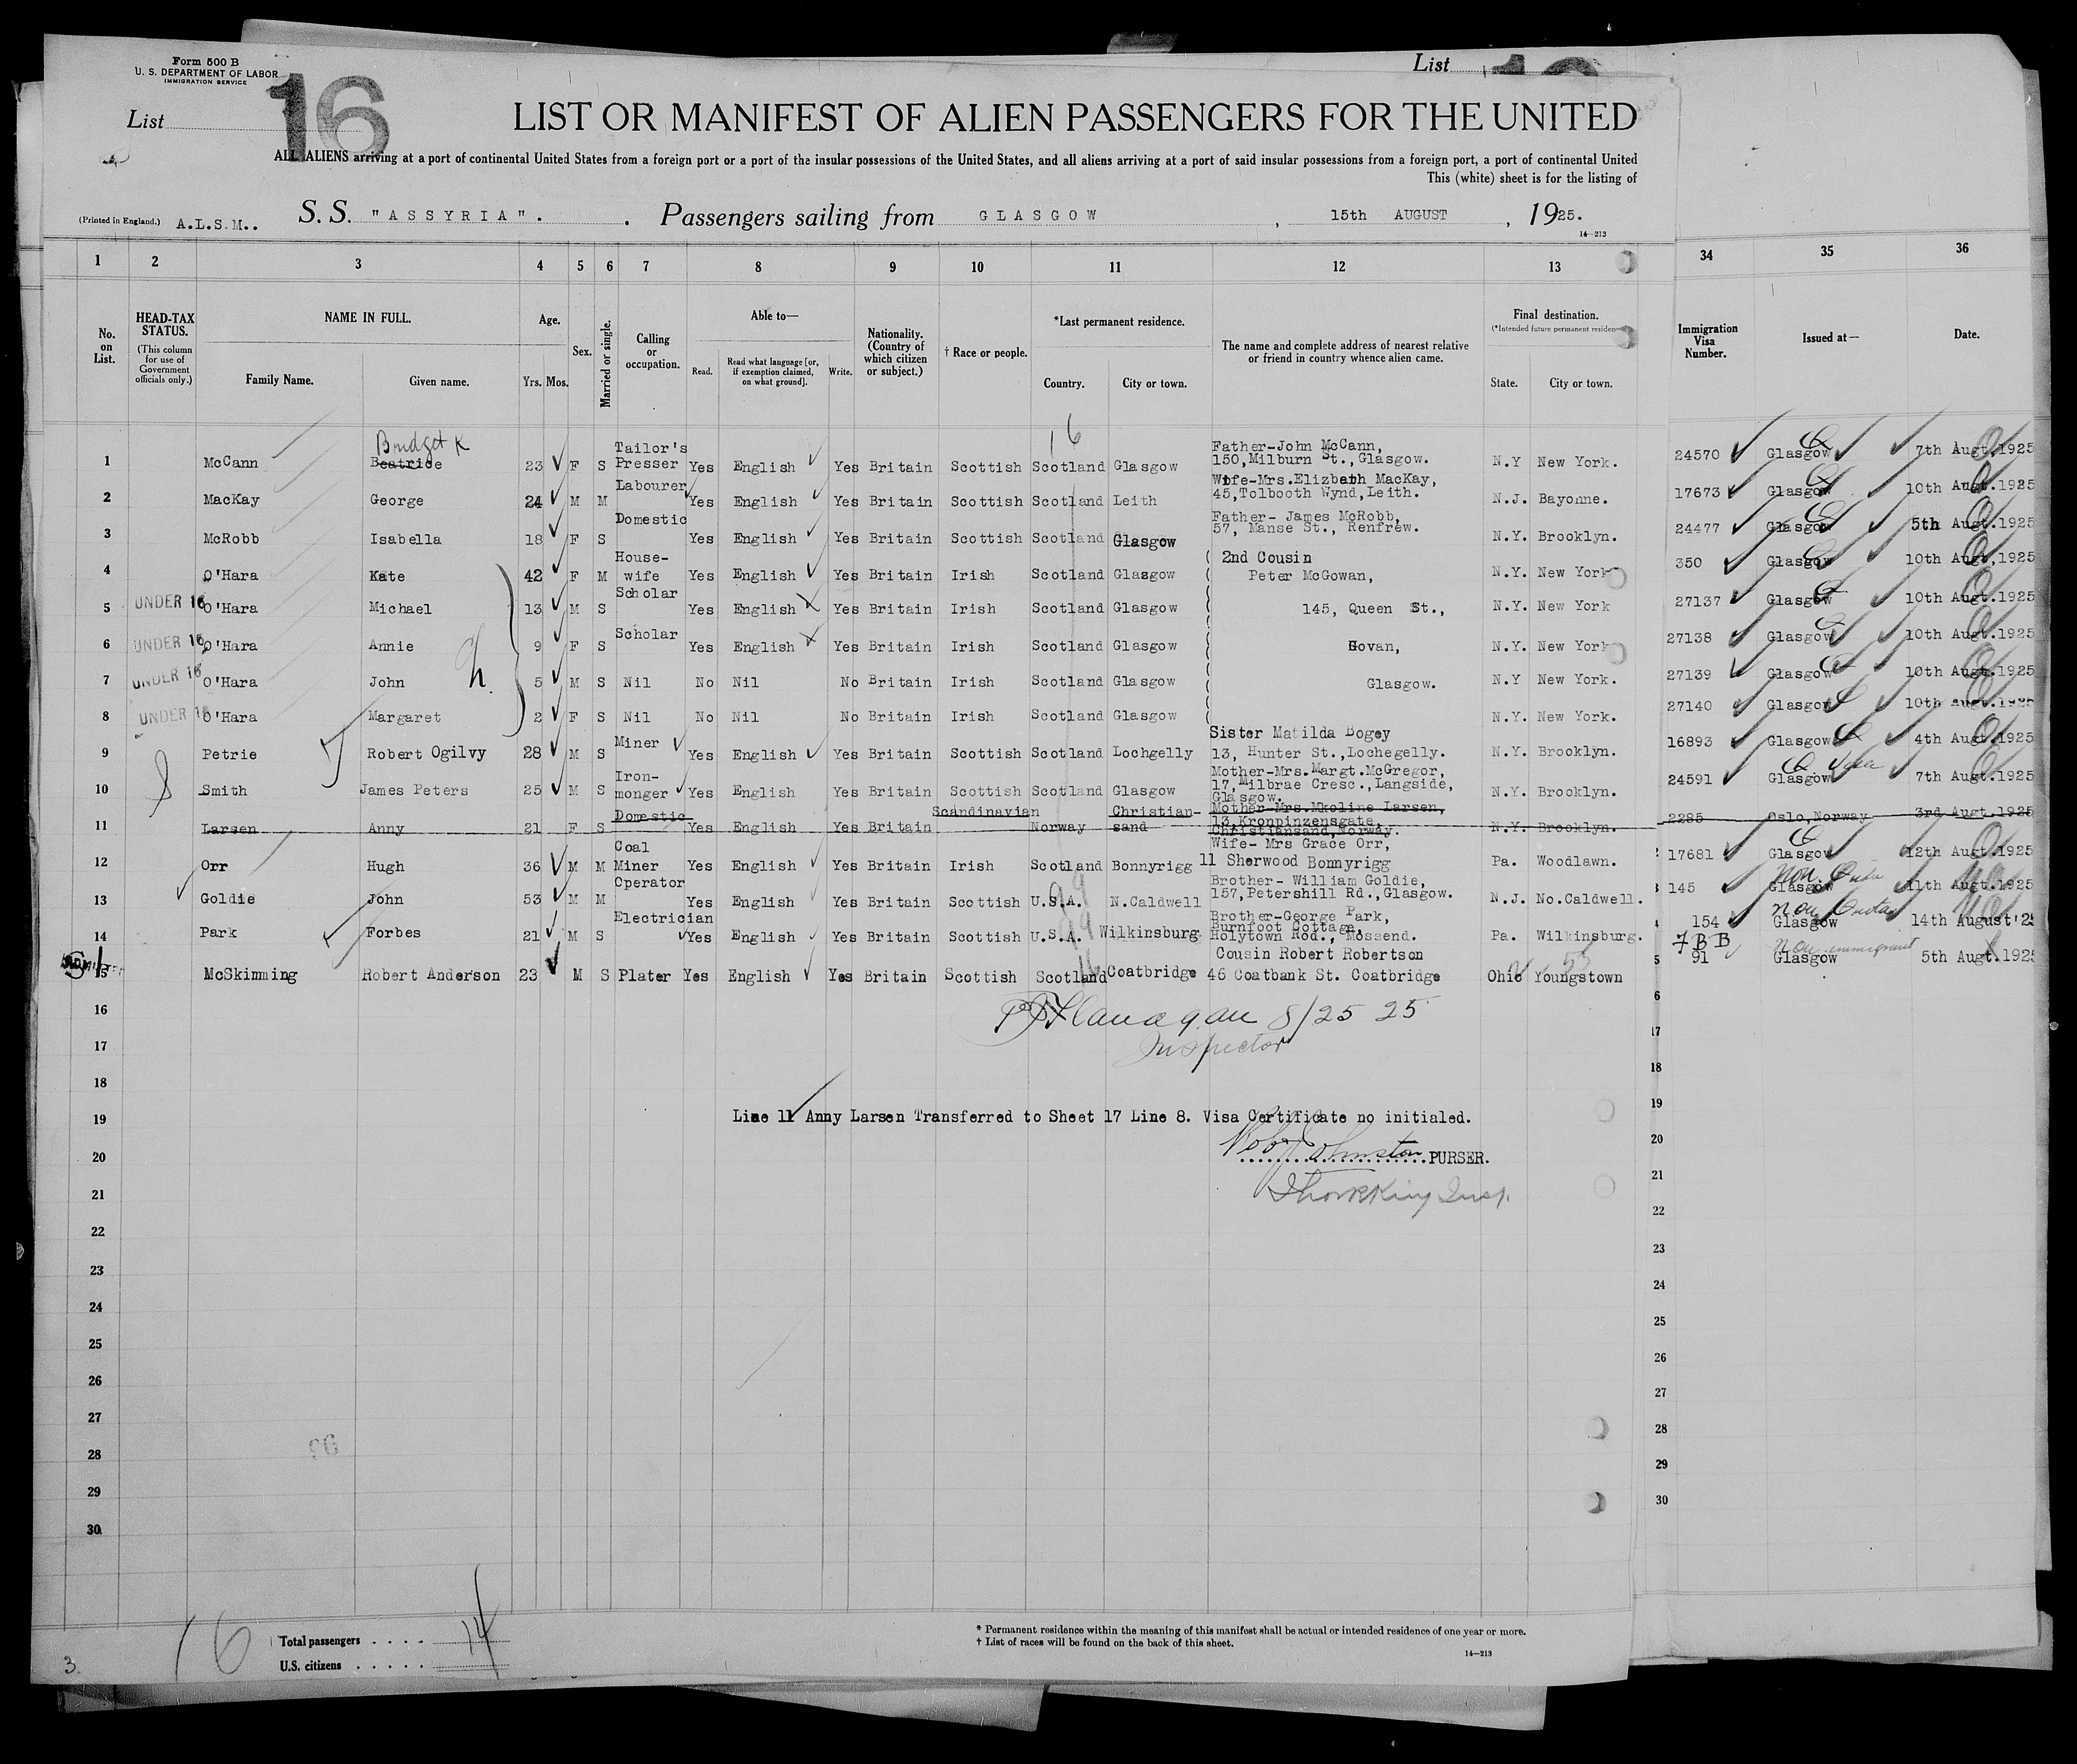 Form 500 B
U. S. DEPARTMENT OF LABOR
IMMIGRATION SERVICE
List 16
List
LIST OR MANIFEST OF ALIEN PASSENGERS FOR THE UNITED
ALL ALIENS arriving at a port of continental United States from a foreign port or a port of the insular possessions of the United States, and all aliens arriving at a port of said insular possessions from a foreign port, a port of continental United
This (white) sheet is for the listing of
(Printed in England.) A.L.S.M.. S. S. "ASSYRIA". Passengers sailing from GLASGOW, 15th AUGUST, 1925.
14—213
1 2 3 4 5 6 7 8 9 10 11 12 13 34 35 36
No. on List. HEAD-TAX STATUS. (This column for use of Government officials only.) NAME IN FULL. Family Name. Given name. Age. Yrs. Mos. Sex. Married or single. Calling or occupation. Able to— Read. Read what language [or, if exemption claimed, on what ground]. Write. Nationality. (Country of which citizen or subject.) † Race or people. *Last permanent residence. Country. City or town. The name and complete address of nearest relative or friend in country whence alien came. Final destination. (*Intended future permanent residence) State. City or town. Immigration Visa Number. Issued at— Date.
16
Bridget K
1 McCann Beatrice 23 F S Tailor's Presser Yes English Yes Britain Scottish Scotland Glasgow Father-John McCann, 150,Milburn St., Glasgow. N.Y New York. 24570 Glasgow 7th Augt.1925
2 MacKay George 24 M M Labourer Yes English Yes Britain Scottish Scotland Leith Wife-Mrs.Elizbeth MacKay, 45,Tolbooth Wynd,Leith. N.J. Bayonne. 17673 Glasgow 10th Augt.1925
3 McRobb Isabella 18 F S Domestic Yes English Yes Britain Scottish Scotland Glasgow Father- James McRobb, 57, Manse St., Renfrew. N.Y. Brooklyn. 24477 Glasgow 5th Augt.1925
4 O'Hara Kate 42 F M House-wife Yes English Yes Britain Irish Scotland Glasgow 2nd Cousin Peter McGowan, N.Y. New York 350 Glasgow 10th Augt,1925
5 UNDER 16 O'Hara Michael 13 M S Scholar Yes English Yes Britain Irish Scotland Glasgow 145, Queen St., N.Y. New York 27137 Glasgow 10th Augt.1925
6 UNDER 16 O'Hara Annie 9 F S Scholar Yes English Yes Britain Irish Scotland Glasgow Govan, N.Y. New York 27138 Glasgow 10th Augt.1925
7 UNDER 16 O'Hara John 5 M S Nil No Nil No Britain Irish Scotland Glasgow Glasgow. N.Y New York. 27139 Glasgow 10th Augt.1925
8 UNDER 16 O'Hara Margaret 2 F S Nil No Nil No Britain Irish Scotland Glasgow N.Y. New York. 27140 Glasgow 10th Augt.1925
9 Petrie Robert Ogilvy 28 M S Miner Yes English Yes Britain Scottish Scotland Lochgelly Sister Matilda Bogey 13, Hunter St.,Lochegelly. N.Y. Brooklyn. 16893 Glasgow 4th Augt.1925
10 Smith James Peters 25 M S Iron-monger Yes English Yes Britain Scottish Scotland Glasgow Mother-Mrs.Margt.McGregor, 17,Milbrae Cresc.,Langside, Glasgow. N.Y. Brooklyn. 24591 Glasgow 7th Augt.1925
11 Larsen Anny 21 F S Domestic Yes English Yes Britain Scandinavian Norway Christian-sand Mother-Mrs.Mkoline Larsen, 13,Kronpinzensgate, Christiansand,Norway. N.Y. Brooklyn. 2285 Oslo,Norway 3rd Augt.1925
12 Orr Hugh 36 M M Coal Miner Yes English Yes Britain Irish Scotland Bonnyrigg Wife- Mrs Grace Orr, 11 Sherwood Bonnyrigg Pa. Woodlawn. 17681 Glasgow 12th Augt.1925
13 Goldie John 53 M M Operator Yes English Yes Britain Scottish U.S.A. N.Caldwell Brother- William Goldie, 157,Petershill Rd.,Glasgow. N.J. No.Caldwell. 145 Glasgow Non Quota 11th Augt.1925
14 Park Forbes 21 M S Electrician Yes English Yes Britain Scottish U.S.A. Wilkinsburg Brother-George Park, Burnfoot Cottage, Holytown Rod., Mossend. Pa. Wilkinsburg. 154 Glasgow Non Quota 14th August'25
15 McSkimming Robert Anderson 23 M S Plater Yes English Yes Britain Scottish Scotland Coatbridge Cousin Robert Robertson 46 Coatbank St. Coatbridge Ohio Youngstown 7 B B 91 Glasgow Non immigrant 5th Augt.1925
16 Flanagan 8/25 25
17 Inspector
18
19 Line 11 Anny Larsen Transferred to Sheet 17 Line 8. Visa Certificate no initialed.
20 Robt Johnston PURSER.
21
22
23
24
25
26
27
28
29
30
16 Total passengers 14
U.S. citizens
* Permanent residence within the meaning of this manifest shall be actual or intended residence of one year or more.
† List of races will be found on the back of this sheet.
14—213
3